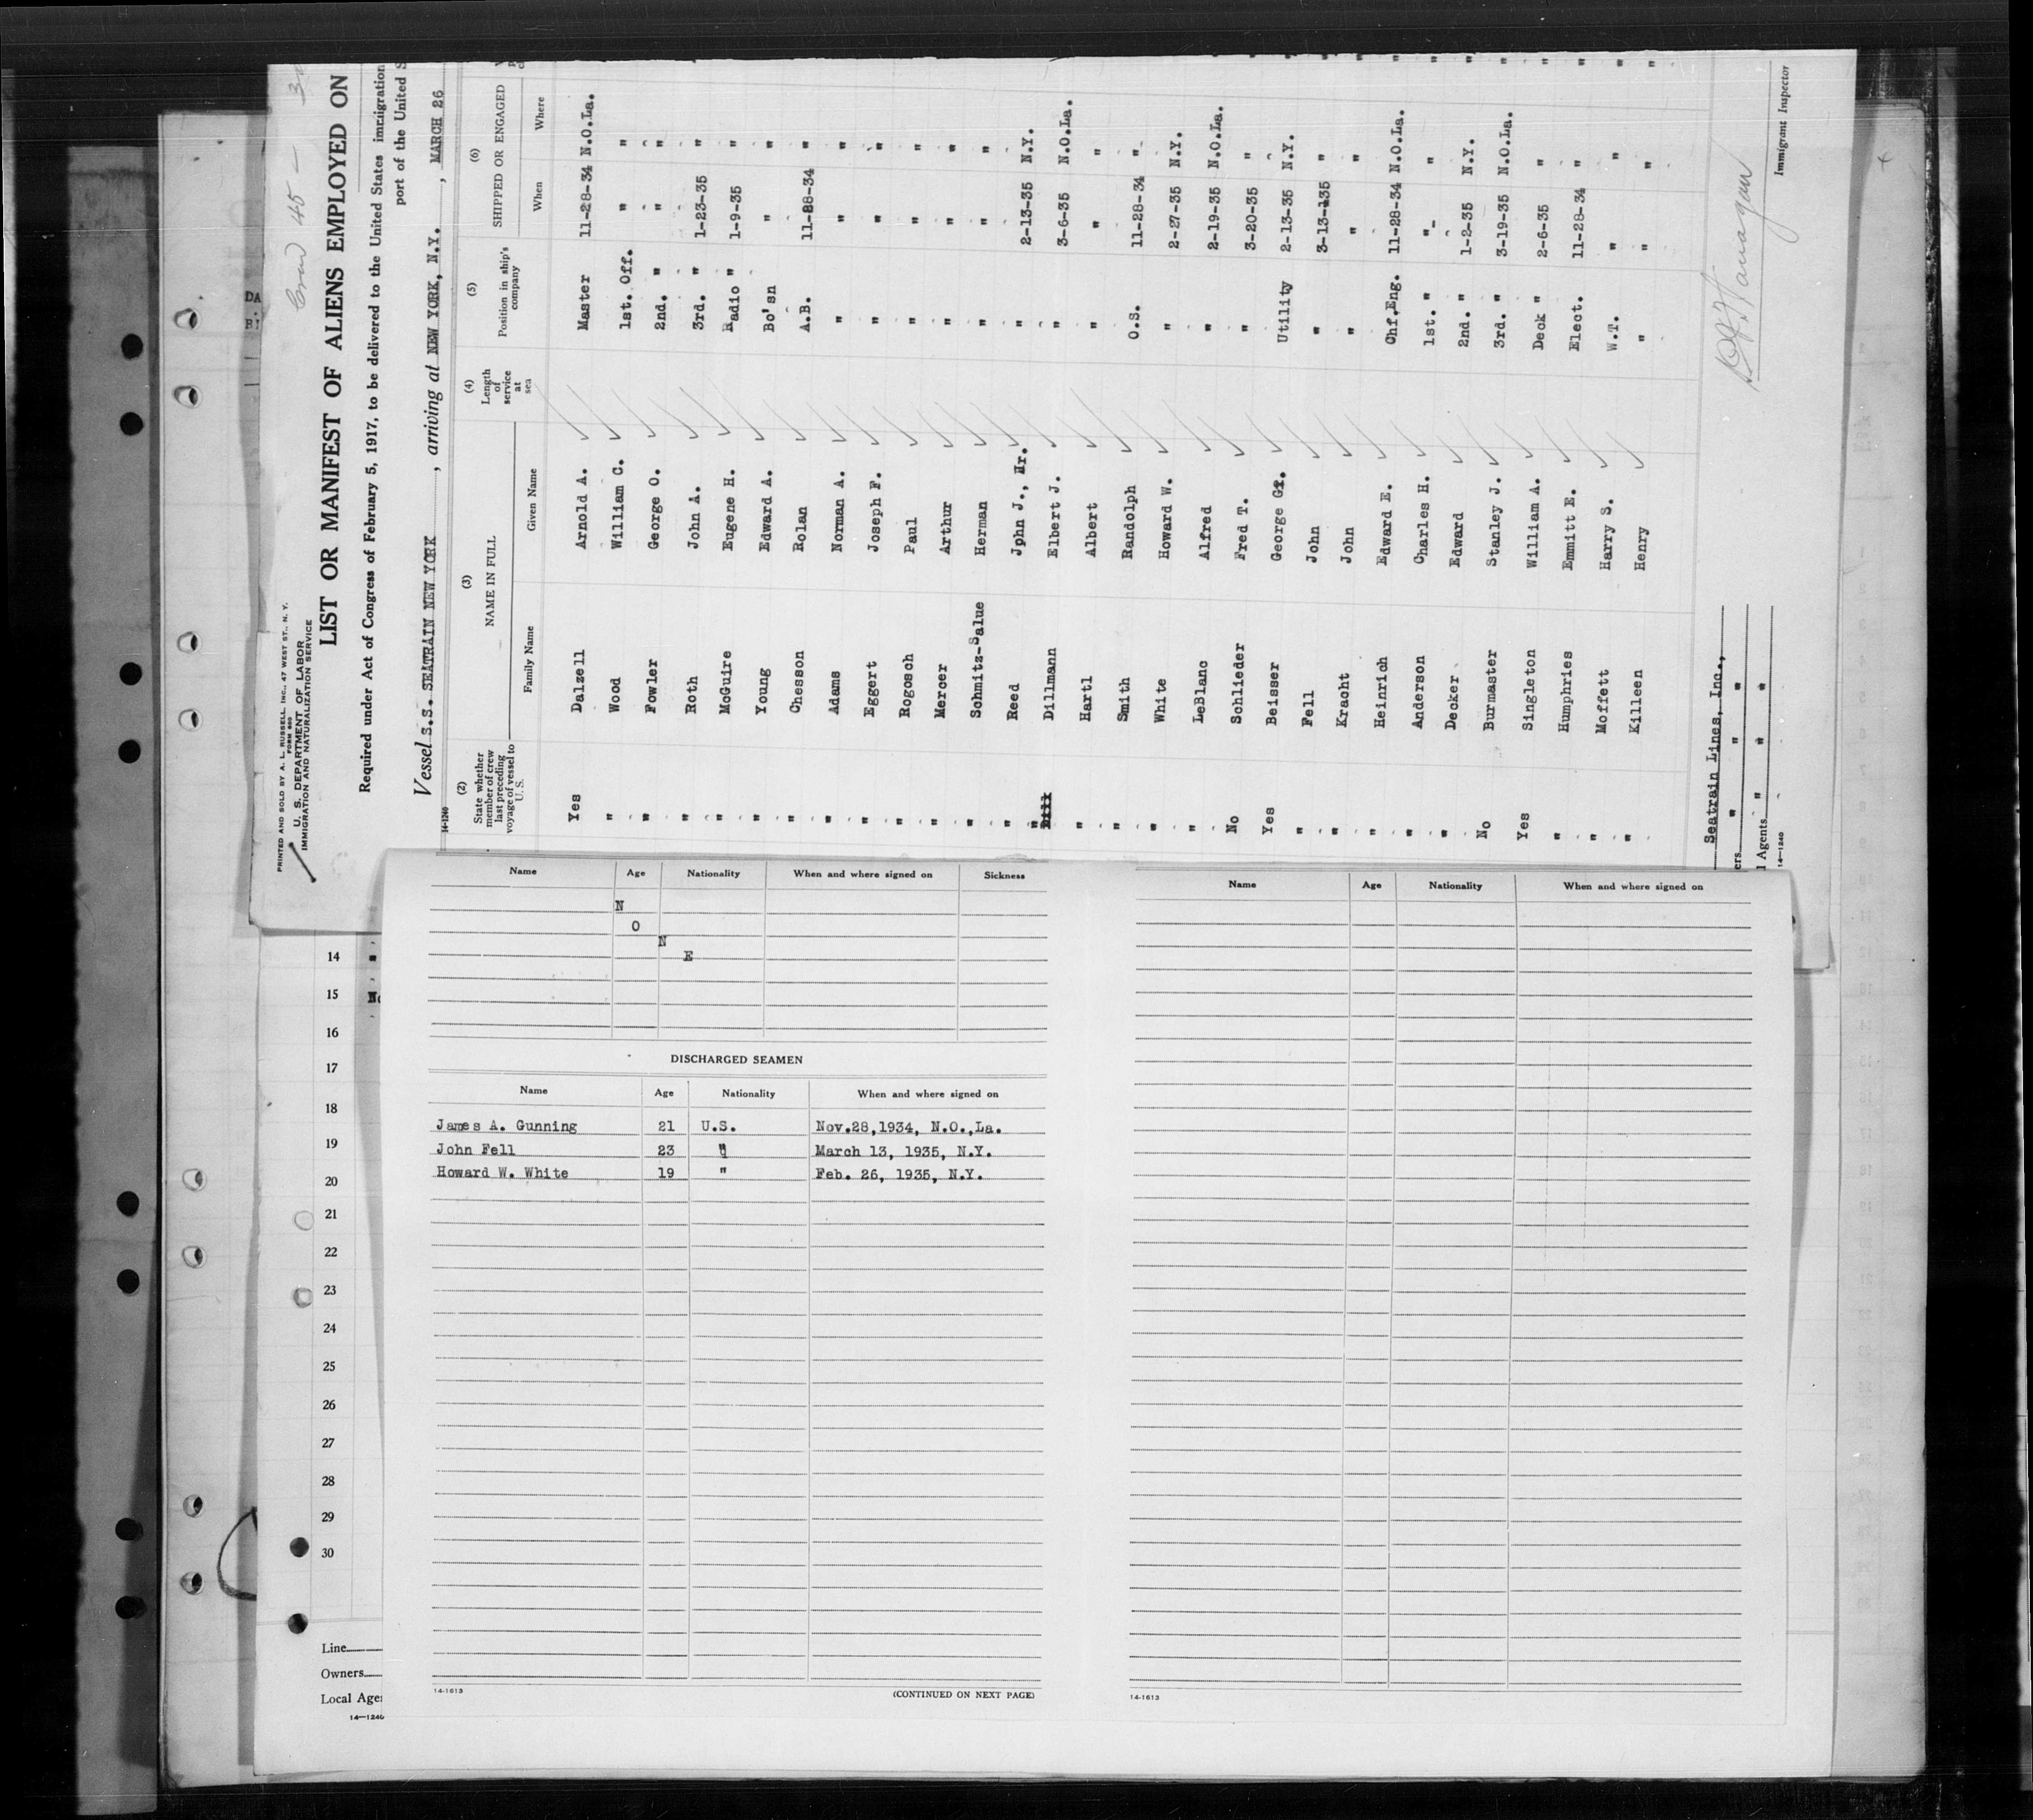 Crew 45 —
PRINTED AND SOLD BY A. L. RUSSELL, INC., 47 WEST ST., N. Y.
FORM 680
U. S. DEPARTMENT OF LABOR
IMMIGRATION AND NATURALIZATION SERVICE
LIST OR MANIFEST OF ALIENS EMPLOYED ON
Required under Act of Congress of February 5, 1917, to be delivered to the United States immigration
port of the United S
Vessel S.S. SEATRAIN NEW YORK , arriving at NEW YORK, N.Y. , MARCH 26
14-1240
(2) (3) (4) (5) (6)
State whether member of crew last preceding voyage of vessel to U. S. NAME IN FULL Length of service at sea Position in ship's company SHIPPED OR ENGAGED
Family Name Given Name When Where
Yes Dalzell Arnold A. Master 11-28-34 N.O.La.
" Wood William C. 1st. Off. " "
" Fowler George O. 2nd. " " "
" Roth John A. 3rd. " 1-23-35 "
" McGuire Eugene H. Radio " 1-9-35 "
" Young Edward A. Bo'sn " "
" Chesson Rolan A.B. 11-28-34 "
" Adams Norman A. " " "
" Eggert Joseph F. " " "
" Rogosch Paul " " "
" Mercer Arthur " " "
" Schmitz-Salue Herman " " "
" Reed John J., Jr. " 2-13-35 N.Y.
" Dillmann Elbert J. " 3-6-35 N.O.La.
" Hartl Albert " " "
" Smith Randolph O.S. 11-28-34 "
" White Howard W. " 2-27-35 N.Y.
" LeBlanc Alfred " 2-19-35 N.O.La.
No Schlieder Fred T. " 3-20-35 "
Yes Beisser George G. Utility 2-13-35 N.Y.
" Fell John " 3-13-35 "
" Kracht John " " "
" Heinrich Edward E. Chf.Eng. 11-28-34 N.O.La.
" Anderson Charles H. 1st. " " "
" Decker Edward 2nd. " 1-2-35 N.Y.
No Burmaster Stanley J. 3rd. " 3-19-35 N.O.La.
Yes Singleton William A. Deck " 2-6-35 "
" Humphries Emmitt E. Elect. 11-28-34 "
" Moffett Harry S. W.T. " "
" Killeen Henry " " "
Seatrain Lines, Inc.,
ers " " "
l Agents " " "
14-1240
Immigrant Inspector
DA
BI
Name Age Nationality When and where signed on Sickness
N
O
N
E
DISCHARGED SEAMEN
Name Age Nationality When and where signed on
James A. Gunning 21 U.S. Nov.28,1934, N.O.,La.
John Fell 23 " March 13, 1935, N.Y.
Howard W. White 19 " Feb. 26, 1935, N.Y.
14-1613 (CONTINUED ON NEXT PAGE)
Name Age Nationality When and where signed on
14-1613
14 "
15 No
16
17
18
19
20
21
22
23
24
25
26
27
28
29
30
Line
Owners
Local Age
14-1240